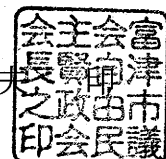 富津市議
会自由民
主賢政会
会長之印
印